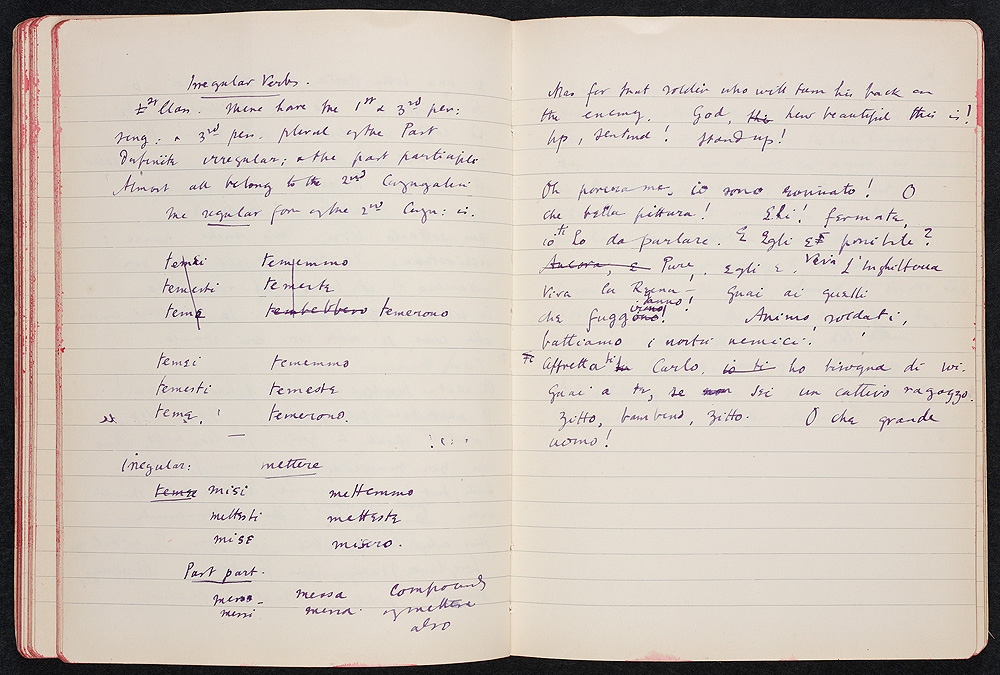 Irregular Verbs.
1st Class. These have the 1st & 3rd per:
sing: & 3rd pers. plural of the Past
Definite irregular; & the past participle
Almost all belong to the 2nd Conjugation
The regular form of the 2nd Conju: is.
temei temjemmo
temesti temeste
teme tembebbero temerono
temei tememmo
temesti temeste
teme, temerono.
Irregular: mettere
temee misi mettemmo
mettesti metteste
mise misero.
Past part.
messo - messa compounds
messi messa. of mettere
also
Alas for that soldier who will turn his back on
the enemy. God, this how beautiful this is!
Up, sentinel! Stand up!
Oh povera me, io sono rovinato! O
che bella pittura! Ehi! fermate,
io ti ho da parlare. E Egli E possibile?
Ancora, E Pure, Egli E. Viva L'Inghilterra
Viva la Regina - Guai ai quelli
che fuggono! Animo, soldati,
battiamo i nostri nemici!
Affretta ti Carlo, io ti ho bisogna di vi.
Guai a te, se non sei un cattivo ragazzo.
Zitto, bambino, zitto. O che grande
uomo!